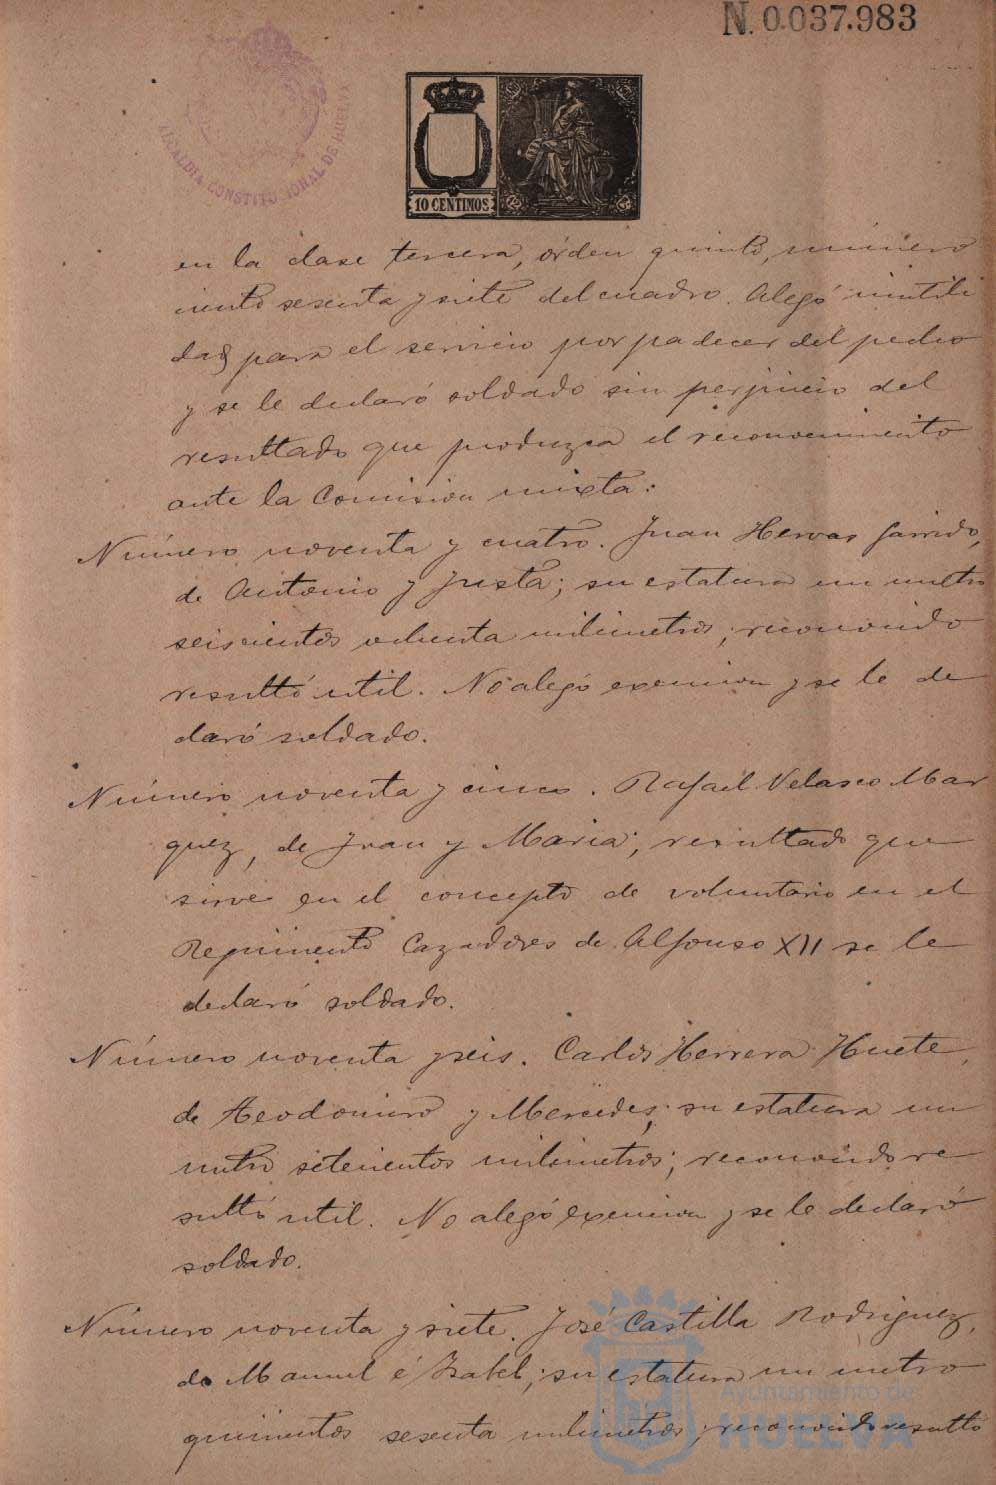 N. 0.037.983
ALCALDIA CONSTITUCIONAL DE HUELVA
10 CENTIMOS
en la clase tercera, órden quinto, número
ciento sesenta y siete del cuadro. Alegó inutili
dad para el servicio por padecer del pecho
y se le declaró soldado sin perjuicio del
resultado que produzca el reconocimiento
ante la Comision mixta:
Número noventa y cuatro. Juan Hervas Garrido,
de Antonio y Justa; su estatura un metro
seiscientos ochenta milimetros; reconocido
resultó util. No alegó exencion y se le de
claró soldado.
Número noventa y cinco. Rafael Velasco Mar
quez, de Juan y Maria; resultado que
sirve en el concepto de voluntario en el
Regimiento Cazadores de Alfonso XII se le
declaró soldado.
Número noventa y seis. Carlos Herrera Huete,
de Teodomiro y Mercedes; su estatura un
metro setecientos milimetros; reconocido re
sultó util. No alegó exencion y se le declaró
soldado.
Número noventa y siete. José Castilla Rodriguez,
de Manuel é Isabel; su estatura un metro
quinientos sesenta milimetros; reconocido resultó
Ayuntamiento de
HUELVA